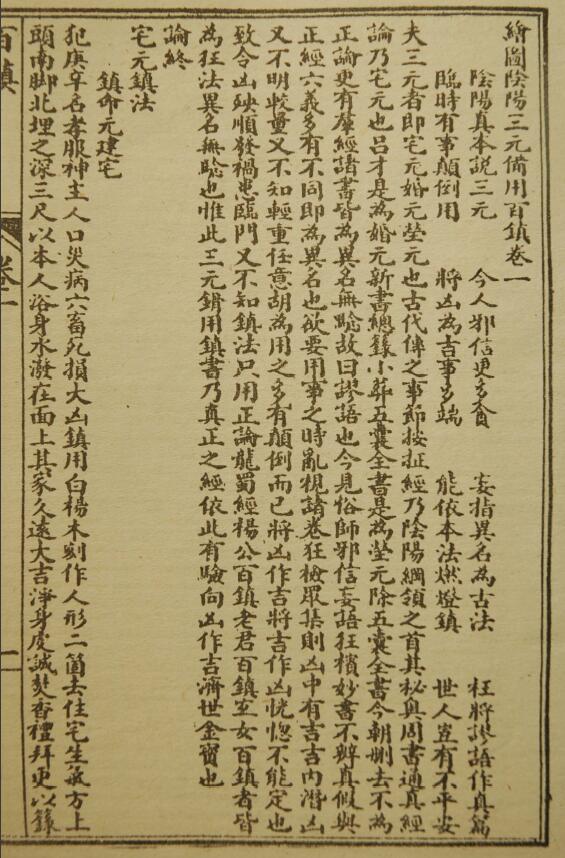 繪圖陰陽三元備用百鎮卷一
陰陽真本說三元 今人邪信更多貪 妄指異名為古法 枉將謬語作真篇
臨時有事顛倒用 將凶為吉事多端 能依本法燃燈鎮 世人豈有不平安
夫三元者即宅元婚元塋元也古代傳之事節按扯經乃陰陽綱領之首其秘與周書通真經
論乃宅元也呂才是為婚元新書總錄小葬五囊全書是為塋元除五囊全書今朝刪去不為
正論更有羣經諸書皆為異名無騐故曰謬語也今見俗師邪信妄語狂穳妙書不辨真假與
正經六義多有不同即為異名也欲要用事之時亂視諸卷狂檢眾集則凶中有吉吉內潛凶
又不明較量又不知輕重任意胡為用之多有顛倒而已將凶作吉將吉作凶恍惚不能定也
致令凶殃順發禍患臨門又不知鎮法只用正論龍蜀經楊公百鎮老君百鎮玄女百鎮者皆
為狂法異名無騐也惟此三元鎮用鎮書乃真正之經依此有驗向凶作吉濟世金寳也
論終
宅元鎮法
鎮命元建宅
犯庚辛名孝服神主人口災病六畜死損大凶鎮用白楊木刻作人形二箇去住宅生氣方上
頭南脚北埋之深三尺以本人浴身水潑在面上其家久遠大吉淨身虔誠焚香禮拜更以籙
百鎮
卷一
一